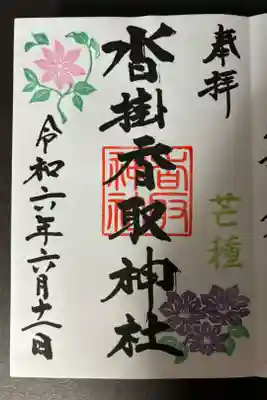 奉拝
芒種
沓掛香取神社
香取神社
令和六年六月十八日